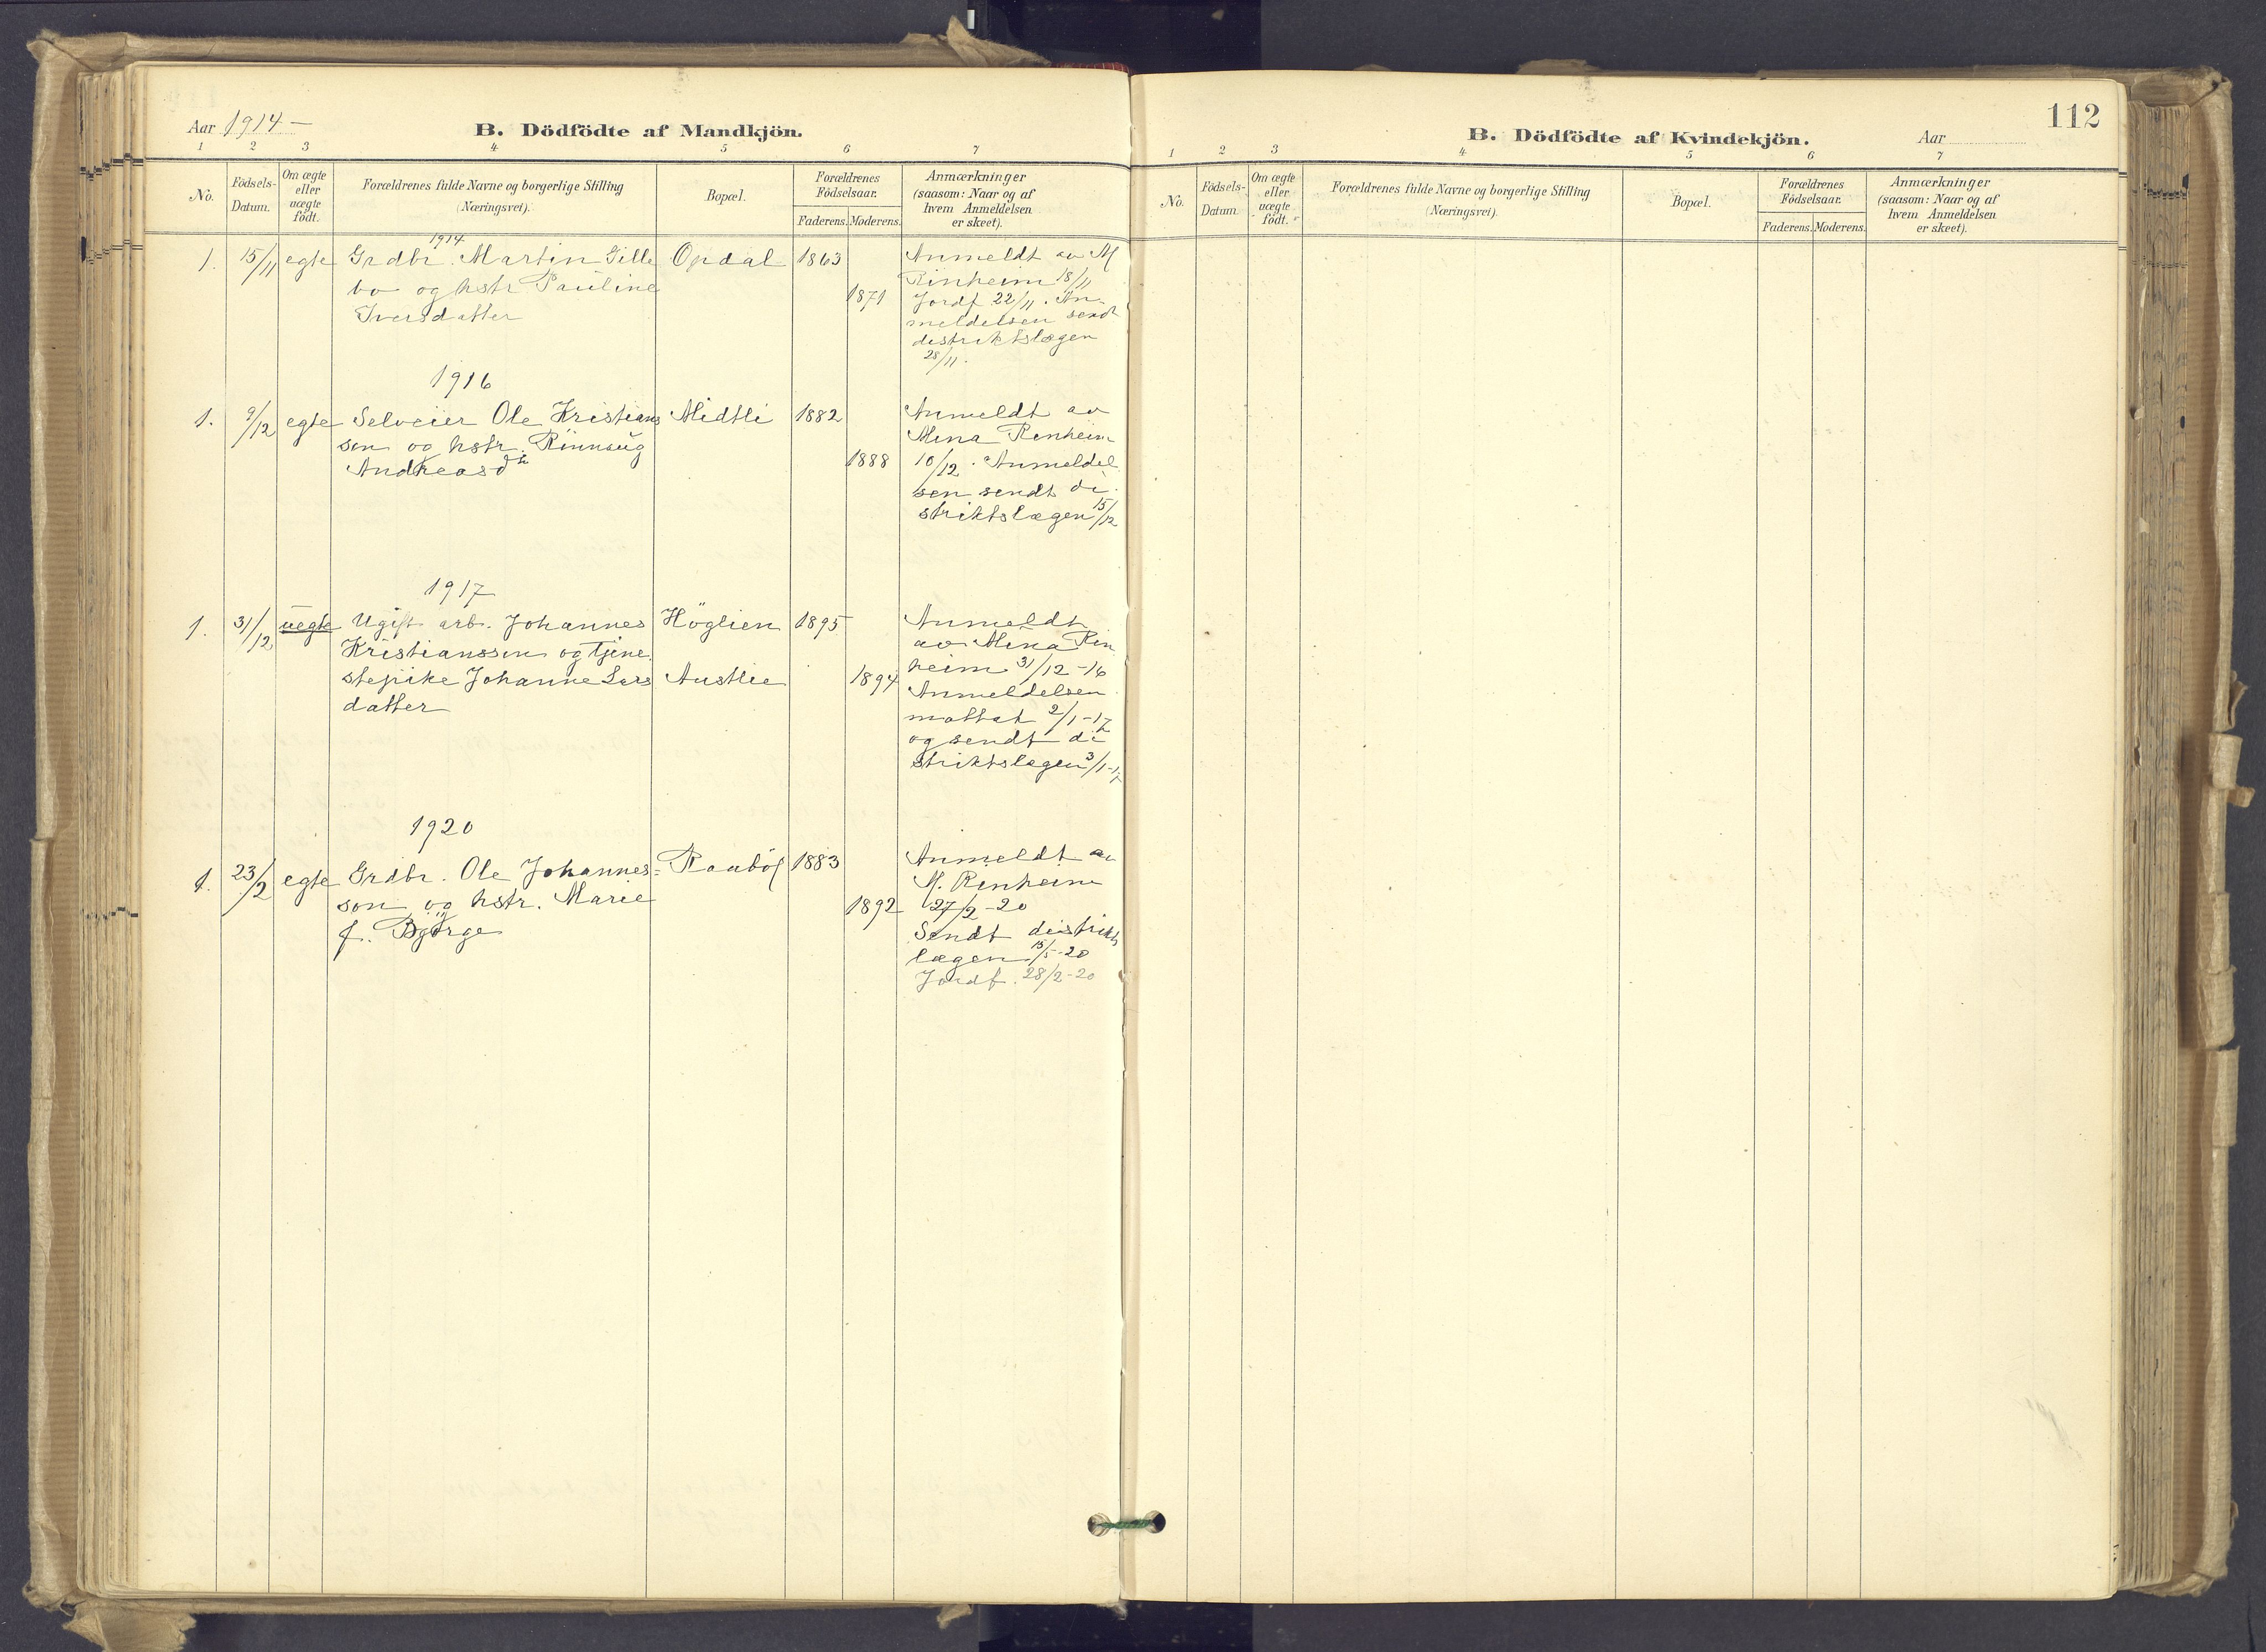 Aar 1914 –
B. Dödfödte af Mandkjön.
1 2 3 4 5 6 7
No.
Födsels-
Datum.
Om ægte
eller
uægte
födt.
Forældrenes fulde Navne og borgerlige Stilling
(Næringsvei).
Bopæl.
Forældrenes
Födselsaar.
Faderens. Moderens.
Anmærkninger
(saasom: Naar og af
hvem Anmeldelsen
er skeet).
1914
1. 15/11 egte Grdbr. Martin Gille Opdal 1863
bo og hstr Pauline 1871
Iversdatter
Anmeldt av M
Rinheim 18/11
Jordf 22/11. An-
meldelsen sendt
distriktslægen
28/11.
1916
1. 9/12 egte Selveier Ole Kristians Midtli 1882
son og hstr. Rönnaug 1888
Andreasdtr
Anmeldt av
Mina Renheim
10/12. Anmeldel
sen sendt di
striktslægen 15/12
1917
1. 31/12 uegte Ugift arb. Johannes Höglien 1895
Kristianssen og tjene
stepike Johanne Lars Austlie 1894
datter
Anmeldt
av Mina Rin
heim 31/12-16
Anmeldelsen
mottat 2/1-17
og sendt di
striktslægen 3/1-17
1920
1. 23/2 egte Grdbr. Ole Johannes- 1883
son og hstr. Marie 1892
f. Bjørge
Anmeldt av
M. Rinheim
27/2-20
Sendt distrikts
lægen 15/5-20
Jordf. 28/2-20
112
B. Dödfödte af Kvindekjön.
Aar
1 2 3 4 5 6 7
No.
Födsels-
Datum
Om ægte
eller
uægte
födt.
Forældrenes fulde Navne og borgerlige Stilling
(Næringsvei).
Bopæl.
Forældrenes
Födselsaar.
Faderens. Moderens.
Anmærkninger
(saasom: Naar og af
hvem Anmeldelsen
er skeet).